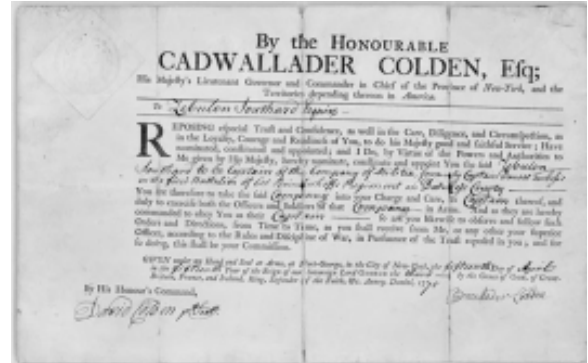 By the HONOURABLE
CADWALLADER COLDEN, Esq;
His Majesty's Lieutenant Governor and Commander in Chief of the Province of New-York, and the
Territories depending thereon in America.
To Zebulon Southard Esquire
REPOSING especial Trust and Confidence, as well in the Care, Diligence, and Circumspection, as
in the Loyalty, Courage and Readiness of You, to do his Majesty good and faithful Service; Have
nominated, constituted and appointed; and I Do, by Virtue of the Powers and Authorities to
Me given by His Majesty, hereby nominate, constitute and appoint You the said Zebulon
Southard to be Captain of the Company of Militia
in the first Battalion of Regiment in County
You are therefore to take the said Company into your Charge and Care, as Captain thereof, and
duly to exercise both the Officers and Soldiers of that Company in Arms. And as they are hereby
commanded to obey You as their Captain So are you likewise to observe and follow such
Orders and Directions, from Time to Time, as you shall receive from Me, or any other your Superior
Officer, according to the Rules and Discipline of War, in Pursuance of the Trust reposed in you; and for
so doing, this shall be your Commission.
GIVEN under my Hand and Seal at Arms, at Fort-George, in the City of New-York, the fifteenth Day of
in the fifteenth Year of the Reign of our Sovereign Lord GEORGE the Third by the Grace of GOD, of Great-
Britain, France, and Ireland, King, Defender of the Faith, &c. Annoq; Domini, 177
By His Honour's Command,
Cadwallader Colden
David Colden